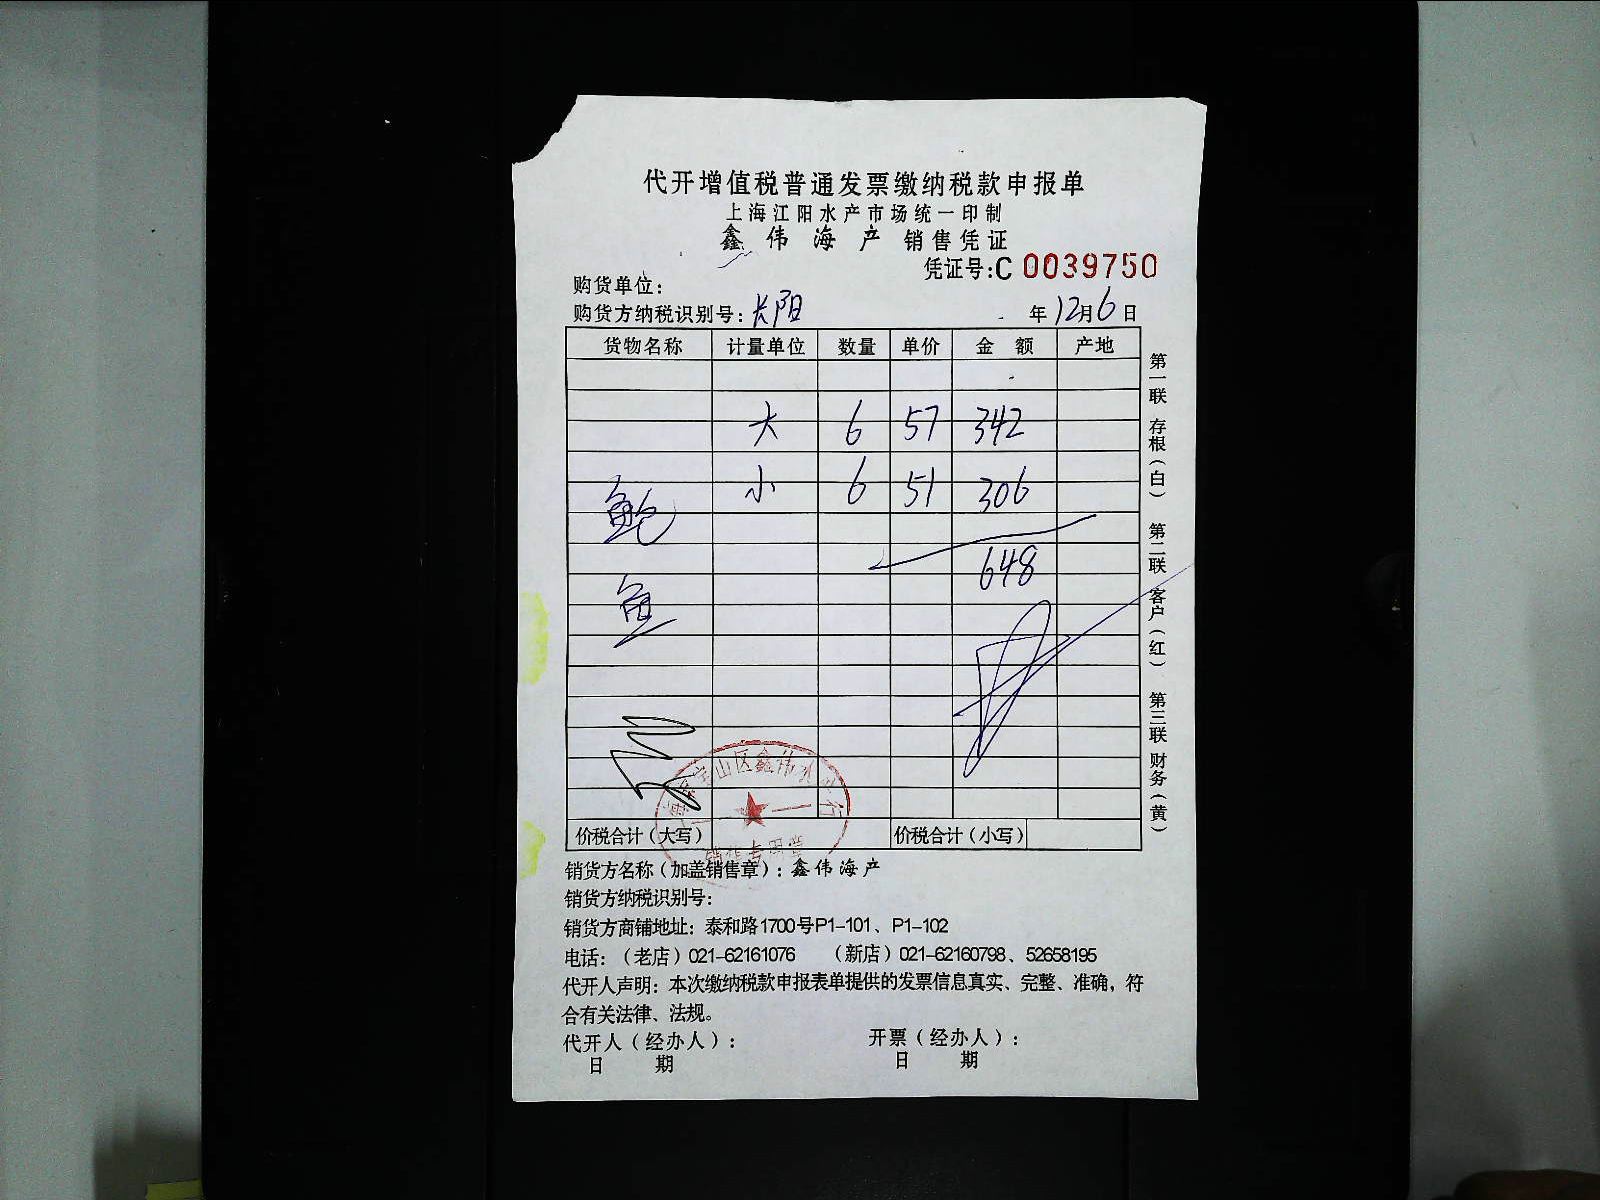 代开增值税普通发票缴纳税款申报单
上海江阳水产市场统一印制
鑫伟海产 销售凭证
凭证号:C 0039750
购货单位：
购货方纳税识别号：长阳 年12月6日
货物名称 计量单位 数量 单价 金额 产地
大 6 57 342
小 6 51 306
鲍
648
鱼
价税合计（大写） 价税合计（小写）
山区鑫伟水
专用章
销货方名称（加盖销售章）：鑫伟海产
销货方纳税识别号：
销货方商铺地址：泰和路1700号P1-101、P1-102
电话：（老店）021-62161076 （新店）021-62160798、52658195
代开人声明：本次缴纳税款申报表单提供的发票信息真实、完整、准确，符
合有关法律、法规。
代开人（经办人）： 开票（经办人）：
日期 日期
第一联 存根（白） 第二联 客户（红） 第三联 财务（黄）